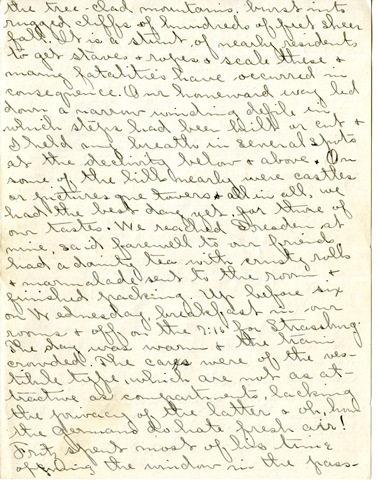 the tree-clad mountains, burst into
rugged cliffs of hundreds of feet sheer
fall. It is a stunt of nearby residents
to get staves & ropes & scale these &
many fatalities have occurred in
consequence. Our homeward way led
down a narrow winding defile in
which steps had been built or cut &
I held my breath in several spots
at the declivity below & above. On
some of the hills nearby were castles
or picturesque towers & all in all, we
had the best day yet, for three of
our tastes. We reached Dresden at
nine, said farewell to our friend,
had a dainty tea with crusty rolls
& marmalade sent to the room &
finished packing. Up before six
on Wednesday, breakfast in our
rooms & off on the 7:16 for Strassburg.
The day was warm & the train
crowded. The cars were of the ves-
tibule type, which are not as at-
tractive as compartments, lacking
the privacy of the latter & oh, how
the Germans do hate fresh air!
Fritz spent most of his time
opening the window in the pass-